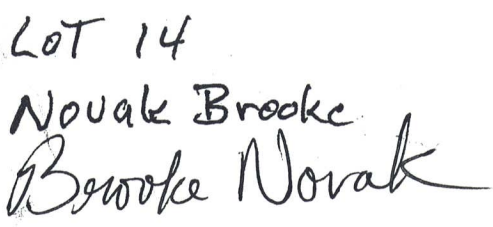 LOT 14
Novak Brooke
Brooke Novak